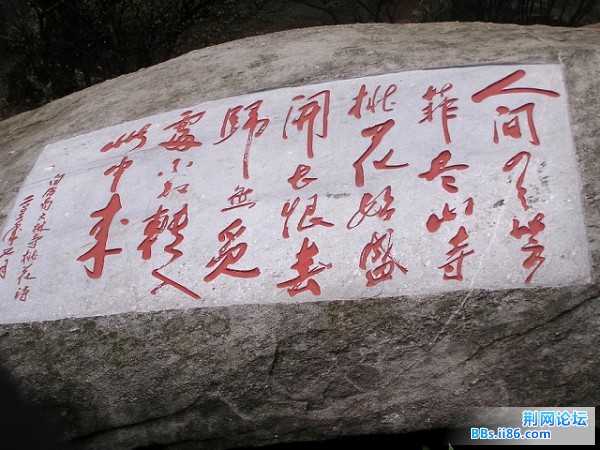 人间四月芳
菲尽山寺
桃花始盛
開长恨春
歸無覓
處不知轉入
此中来
白居易大林寺桃花诗
荆网论坛
BBs.ii86.com